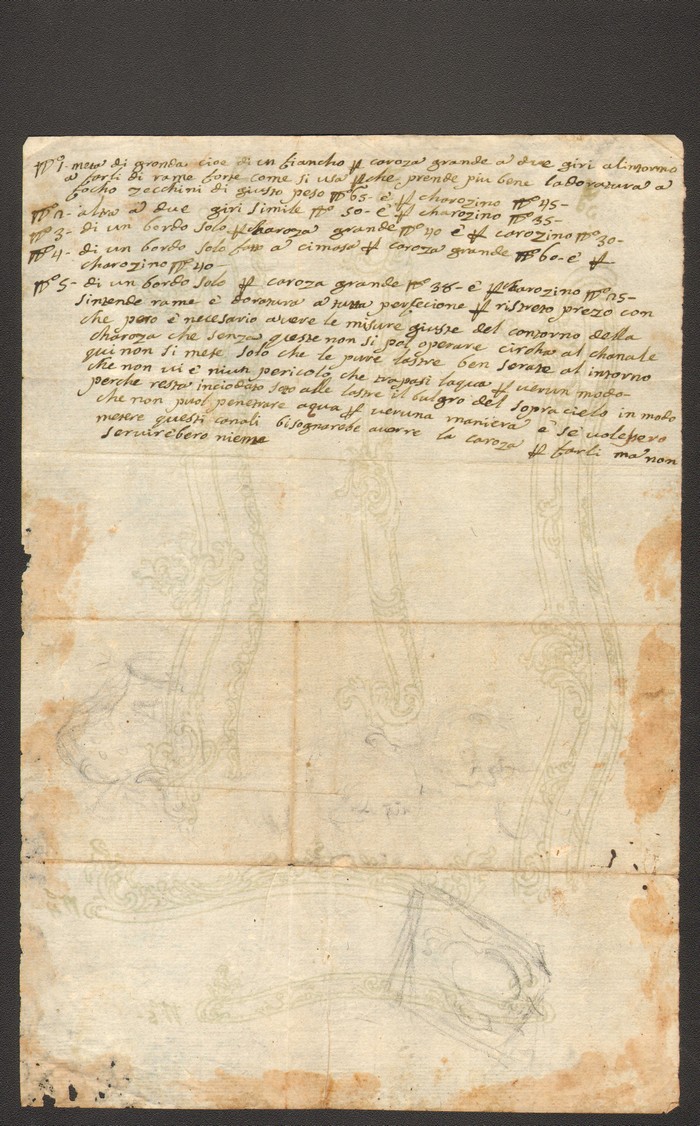 N.o 1- metà di gronda cioe di un fiancho p caroza grande à due giri al intorno
à farli di rame forte come si usa p che prende piu bene la doratura à
focho zecchini di giusto peso N.o 65- è p charozino N.o 45-
N.o 2- altra à due giri simile N.o 50- è p charozino N.o 35-
N.o 3- di un bordo solo p charoza grande N.o 40 è p carozino N.o 30-
N.o 4- di un bordo solo fato à cimasa p caroza grande N.o 60- è p
charozino N.o 40-
N.o 5- di un bordo solo p caroza grande N.o 38- è p charozino N.o 25-
sintende rame è doratura à tutta perfecione p ristreto prezo con
che pero è necesario avere le misure giuste del contorno della
charoza che senza queste non si pol operare circha al chanale
qui non si mete solo che le pure lastre ben serate al intorno
che non vi è niun pericolo che trapasi laqua p verun modo-
perche resta inciodato soto alle lastre il bulgro del sopra cielo in modo
che non puol penetrare aqua p veruna maniera è se volesero
metere questi canali bisognarebe averre la caroza p farli ma non
servirebero niente